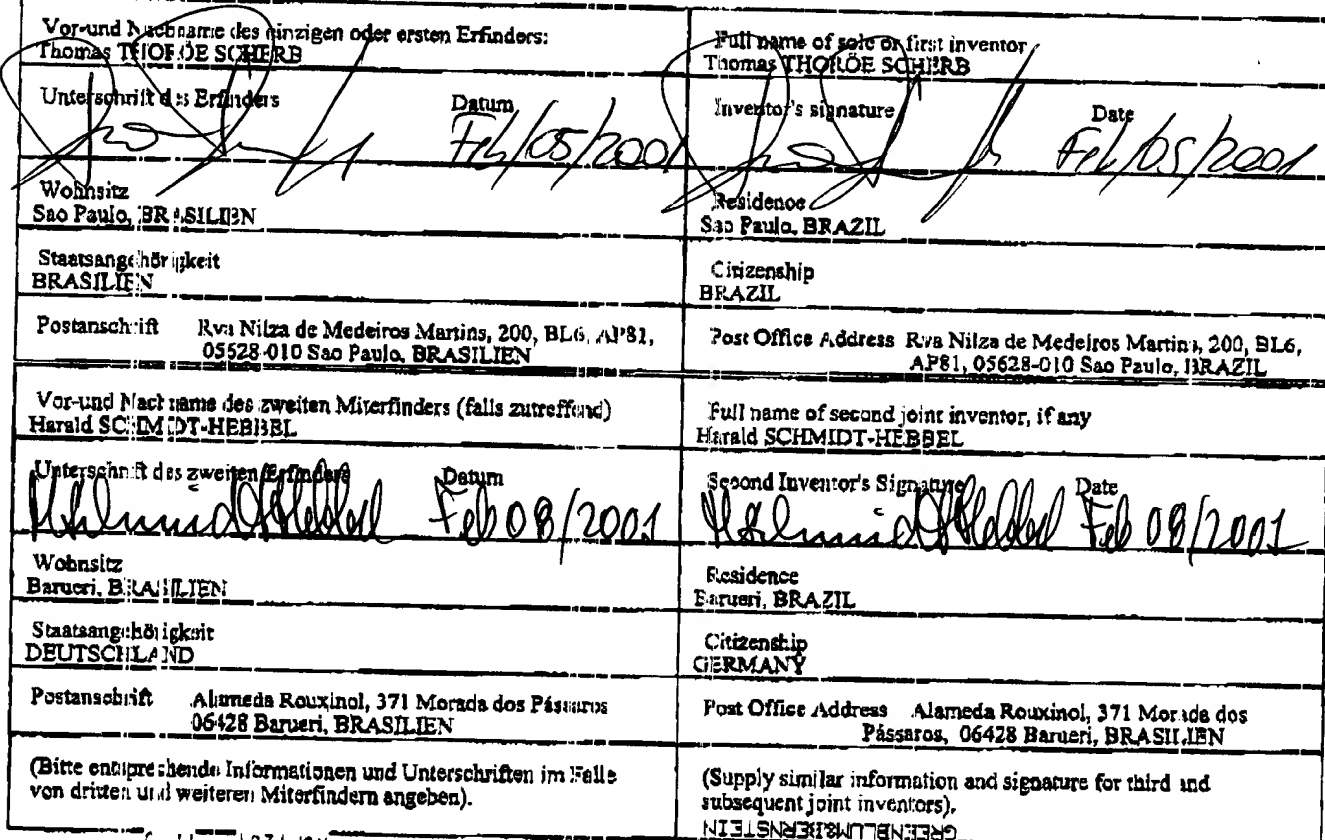 Vor-und Nachname des einzigen oder ersten Erfinders:
Thomas THORÖE SCHERB
Unterschrift des Erfinders Datum
Feb/05/2001
Wohnsitz
Sao Paulo, BRASILIEN
Staatsangehörigkeit
BRASILIEN
Postanschrift Rva Nilza de Medeiros Martins, 200, BL6, AP81,
05628-010 Sao Paulo, BRASILIEN
Vor-und Nachname des zweiten Miterfinders (falls zutreffend)
Harald SCHMIDT-HEBBEL
Unterschrift des zweiten Erfinders Datum
HSchmidtHebbel Feb 08/2001
Wohnsitz
Barueri, BRASILIEN
Staatsangehörigkeit
DEUTSCHLAND
Postanschrift Alameda Rouxinol, 371 Morada dos Pássaros
06428 Barueri, BRASILIEN
(Bitte entsprechende Informationen und Unterschriften im Falle
von dritten und weiteren Miterfindern angeben).
Full name of sole or first inventor
Thomas THORÖE SCHERB
Inventor's signature Date
Feb/05/2001
Residence
Sao Paulo, BRAZIL
Citizenship
BRAZIL
Post Office Address Rva Nilza de Medeiros Martins, 200, BL6,
AP81, 05628-010 Sao Paulo, BRAZIL
Full name of second joint inventor, if any
Harald SCHMIDT-HEBBEL
Second Inventor's Signature Date
HSchmidtHebbel Feb 08/2001
Residence
Barueri, BRAZIL
Citizenship
GERMANY
Post Office Address Alameda Rouxinol, 371 Morada dos
Pássaros, 06428 Barueri, BRASILIEN
(Supply similar information and signature for third and
subsequent joint inventors).
GREENBLUM&BERNSTEIN